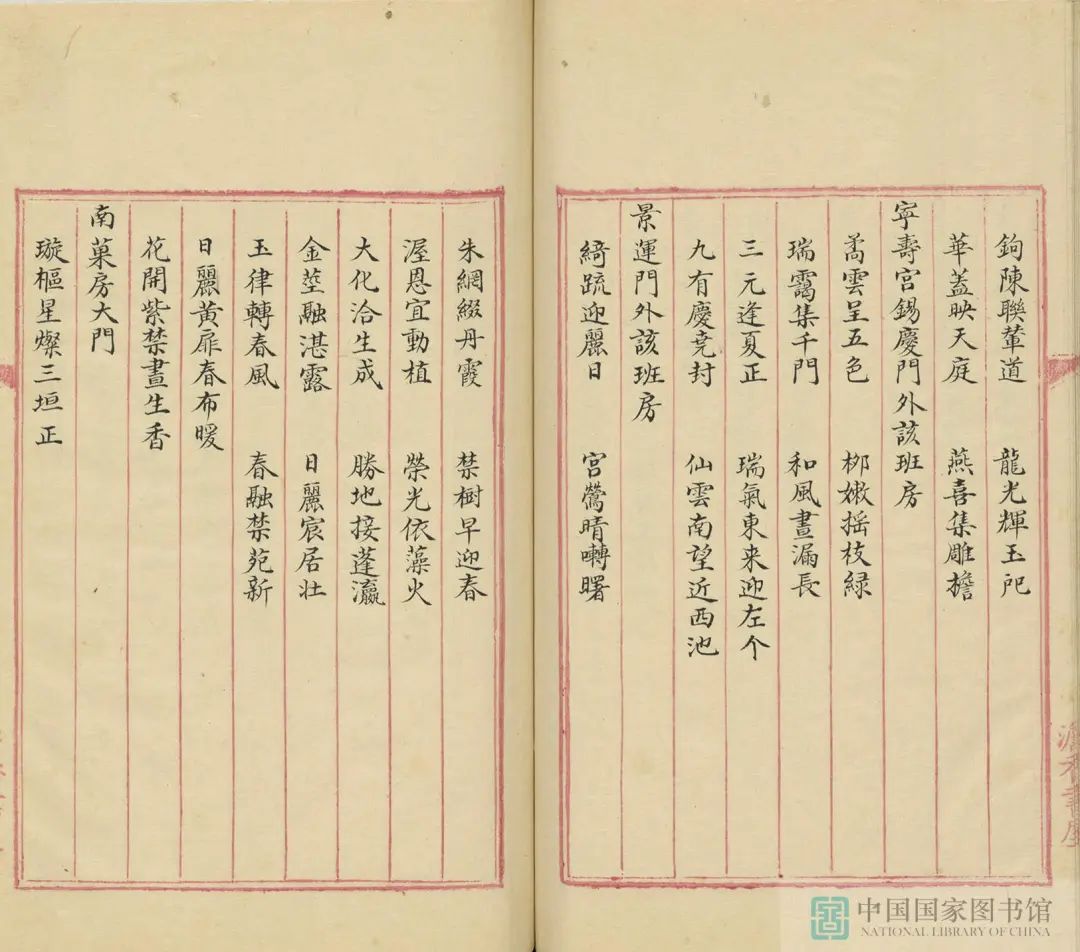 鉤陳聯輦道 龍光輝玉戺
華蓋映天庭 燕喜集雕檐
寧壽宮錫慶門外該班房
矞雲呈五色 栁嫩摇枝緑
瑞靄集千門 和風晝漏長
三元逢夏正 瑞氣東来迎左个
九有慶堯封 仙雲南望近西池
景運門外該班房
綺疏迎麗日 宮鶯晴囀曙
朱網綴丹霞 禁樹早迎春
渥恩宜動植 榮光依藻火
大化洽生成 勝地接蓬瀛
金莖融湛露 日麗宸居壮
玉律轉春風 春融禁苑新
日麗黄扉春布暖
花開紫禁晝生香
南菓房大門
璇樞星燦三垣正
中国国家图书馆
NATIONAL LIBRARY OF CHINA